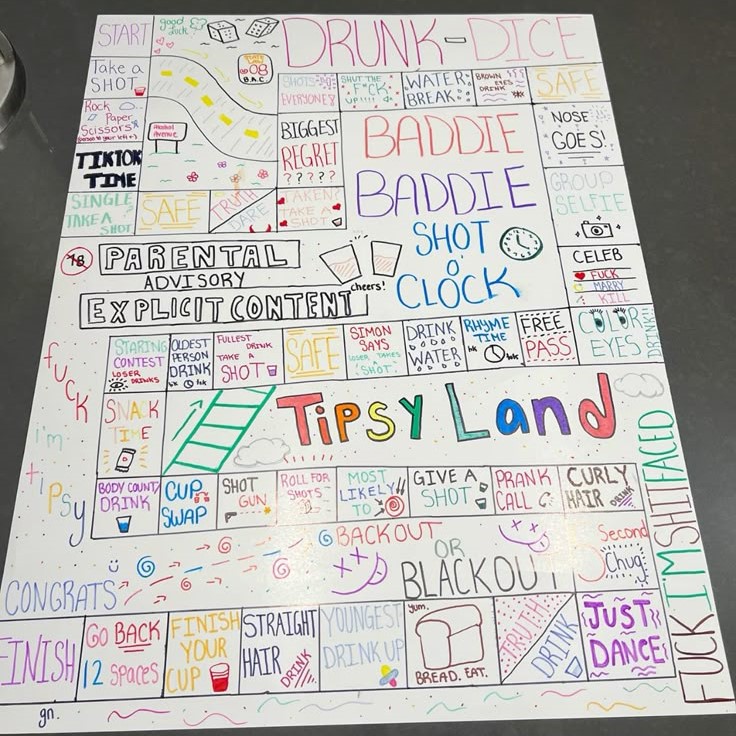 START
good
luck
DRUNK-DICE
Take a
SHOT
08
B.A.C.
SHOTS
EVERYONE?
SHUT THE
F*CK
UP!!!!
WATER
BREAK
BROWN
EYES
DRINK
SAFE
Rock
Paper
Scissors
Alcohol
Avenue
BIGGEST
REGRET
?????
BADDIE
BADDIE
SHOT
O
CLOCK
NOSE
GOES!
TIKTOK
TIME
GROUP
SELFIE
SINGLE
TAKE A
SHOT
SAFE
TRUTH
DARE
TAKEN?
TAKE A
SHOT
18
PARENTAL
ADVISORY
EXPLICIT CONTENT
cheers!
CELEB
FUCK
MARRY
KILL
STARING
CONTEST
LOSER
DRINKS
OLDEST
PERSON
DRINK
FULLEST
DRINK
TAKE A
SHOT
SAFE
SIMON
SAYS
LOSER TAKES
SHOT
DRINK
WATER
RHYME
TIME
FREE
PASS
COLOR
EYES
DRINK
fuck
i'm
tipsy
SNACK
TIME
Tipsy Land
BODY COUNT
DRINK
CUP
SWAP
SHOT
GUN
ROLL FOR
SHOTS
MOST
LIKELY
TO
GIVE A
SHOT
PRANK
CALL
CURLY
HAIR
DRINK
FUCK I'M SHITFACED
CONGRATS
BACKOUT
OR
BLACKOUT
5
Second
Chug
FINISH
GO BACK
12 SPACES
FINISH
YOUR
CUP
STRAIGHT
HAIR
DRINK
YOUNGEST
DRINK UP
yum.
BREAD. EAT.
TRUTH
DRINK
JUST
DANCE
gn.